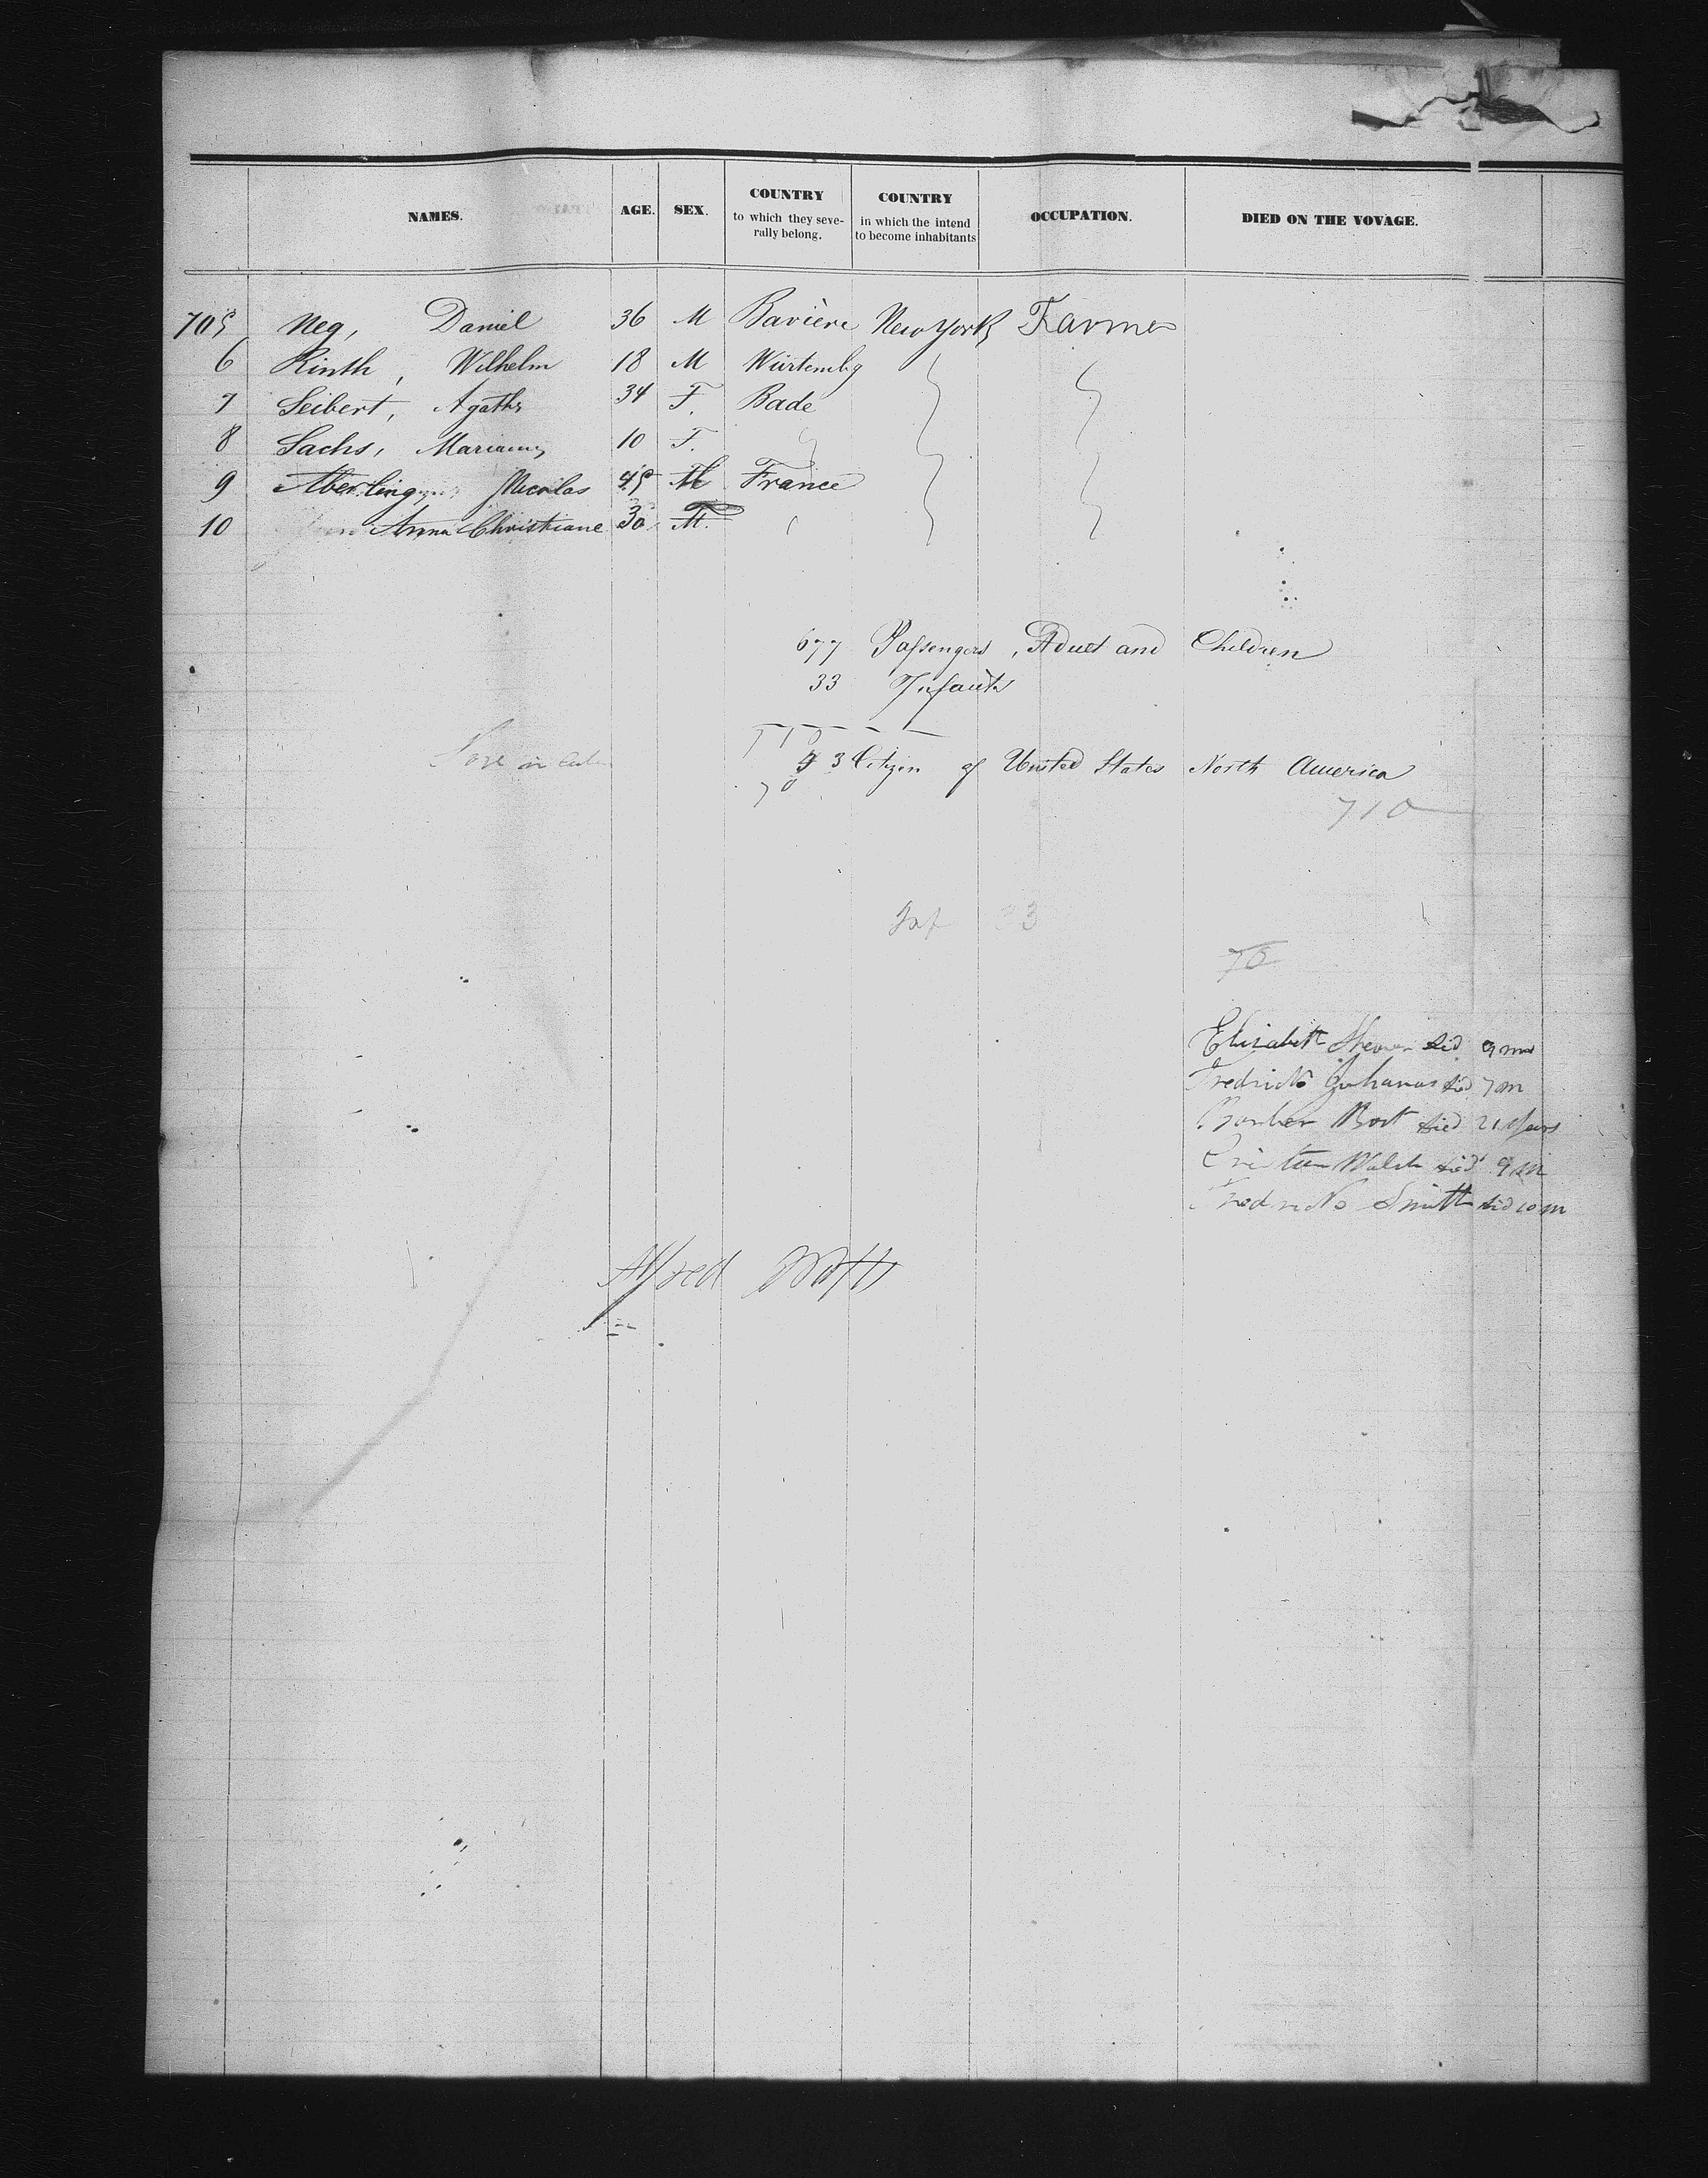 NAMES. AGE. SEX. COUNTRY to which they seve-rally belong. COUNTRY in which the intend to become inhabitants OCCUPATION. DIED ON THE VOYAGE.
705 Neg, Daniel 36 M Bavière New York Farmer
6 Rinth, Wilhelm 18 M Würtembg
7 Seibert, Agathe 34 F. Bade
8 Sachs, Mariann 10 F.
9 Aberling, Nicolas 45 M France
10 Anna Christiane 30 M.
677 Passengers, Aduct and Children
33 Infants
710
3 Citizen of United States North America
70
710
Inf 33
70
Elizabeth died 9 m
Fredrick Johanas died 7 m
Bort died 21 Years
Walch died 9 m
Fredrick Smith died 10 m
Alfred